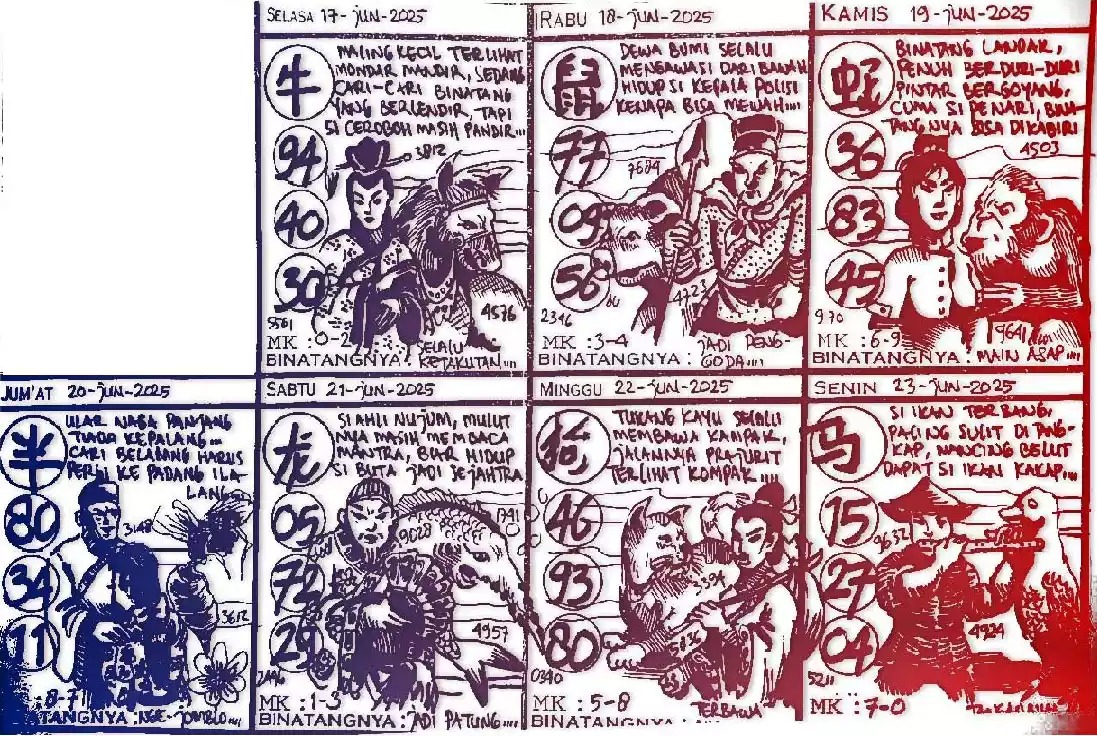 SELASA 17-JUN-2025
牛
MALING KECIL TERLIHAT
MONDAR MANDIR, SEDANG
CARI-CARI BINATANG
YANG BERLENDIR, TAPI
SI CEROBOH MASIH PANDIR...
94
40
30
3812
4576
5561
MK :0-2
BINATANGNYA : SELALU
KETAKUTAN....
RABU 18-JUN-2025
鼠
DEWA BUMI SELALU
MENGAWASI DARI BAWAH
HIDUP SI KEPALA POLISI
KENAPA BISA MEWAH....
77
09
56
7684
4723
2346
MK :3-4
BINATANGNYA : JADI PENG-
GODA....
KAMIS 19-JUN-2025
BINATANG LANDAK,
PENUH BERDURI-DURI
PINTAR BERGOYANG,
CUMA SI PENARI, BINA-
TANGNYA BISA DIKABIRI
36
83
45
4503
970
9641
MK :6-9
BINATANGNYA : MAIN ASAP....
JUM'AT 20-JUN-2025
ULAR NAGA PANJANG
TIADA KEPALANG...
CARI BELALANG HARUS
PERGI KE PADANG ILA-
LANG...
80
34
11
3148
3612
8-7
TANGNYA : NGE-JOMBLO....
SABTU 21-JUN-2025
龙
SI AHLI NUJUM, MULUT
NYA MASIH MEMBACA
MANTRA, BIAR HIDUP
SI BUTA JADI SEJAHTRA
05
72
29
9028
1341
4957
MK :1-3
BINATANGNYA : JADI PATUNG....
MINGGU 22-JUN-2025
TUKANG KAYU SELALU
MEMBAWA KAMPAK,
JALANNYA PRAJURIT
TERLIHAT KOMPAK....
46
93
80
0340
MK :5-8
BINATANGNYA : TERBAWA
SENIN 23-JUN-2025
马
SI IKAN TERBANG,
PACING SULIT DI TANG-
KAP, MANCING BELUT
DAPAT SI IKAN KAKAP...
15
27
04
9652
4924
MK :7-0